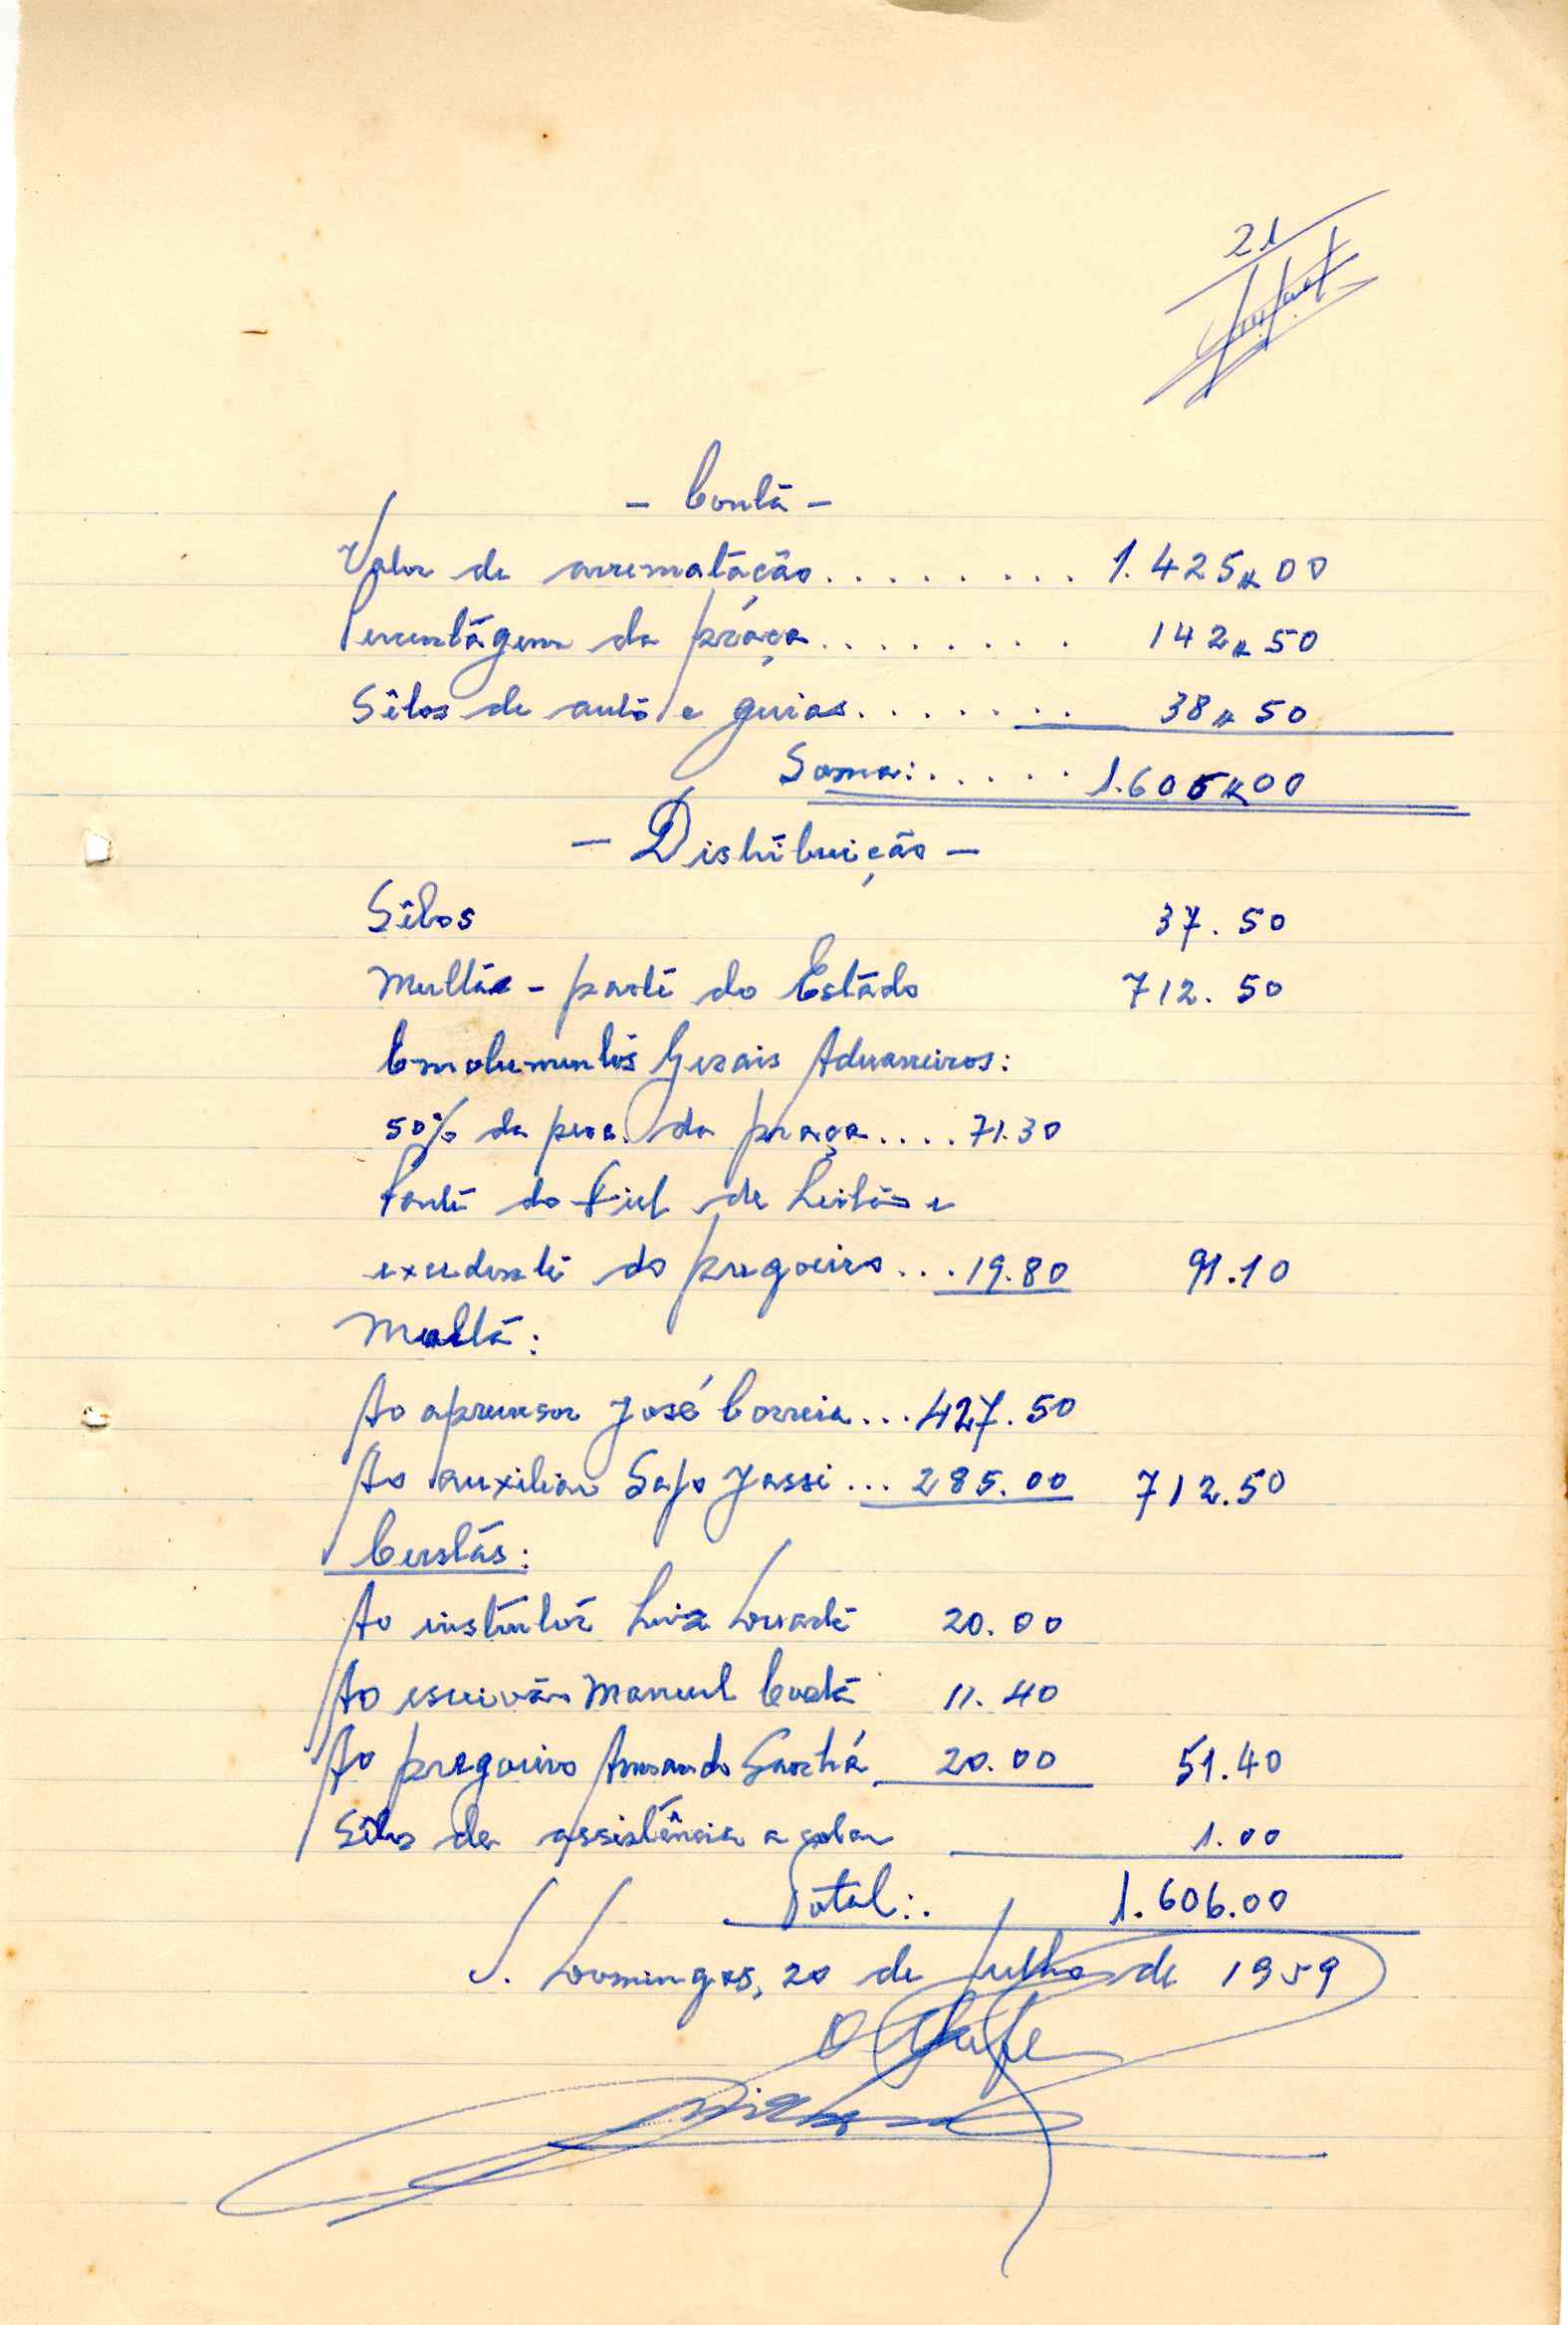 21
- Conta -
Valor de arrematação......... 1.425$00
Percentágem da práça........ 142$50
Sêlos de auto e guias........ 38$50
Soma:..... 1.606$00
- Distribuição -
Sêlos 37.50
Multa - parte do Estado 712.50
Emolumentos Gerais Aduaneiros:
50% da perc. da praça.... 71.30
Parte do Fiel de Leilão e
excedente do pregoeiro... 19.80 91.10
Multa:
Ao apreensor José Correia... 427.50
Ao auxiliar Safo Jassi... 285.00 712.50
Custas:
Ao instrutor Luiz Duarte 20.00
Ao escrivão Manuel Costa 11.40
Ao pregoeiro Armando Sanhá 20.00 51.40
Sêlos de assistência a colar 1.00
Total:. 1.606.00
S. Domingos, 20 de Julho de 1959
O Chefe